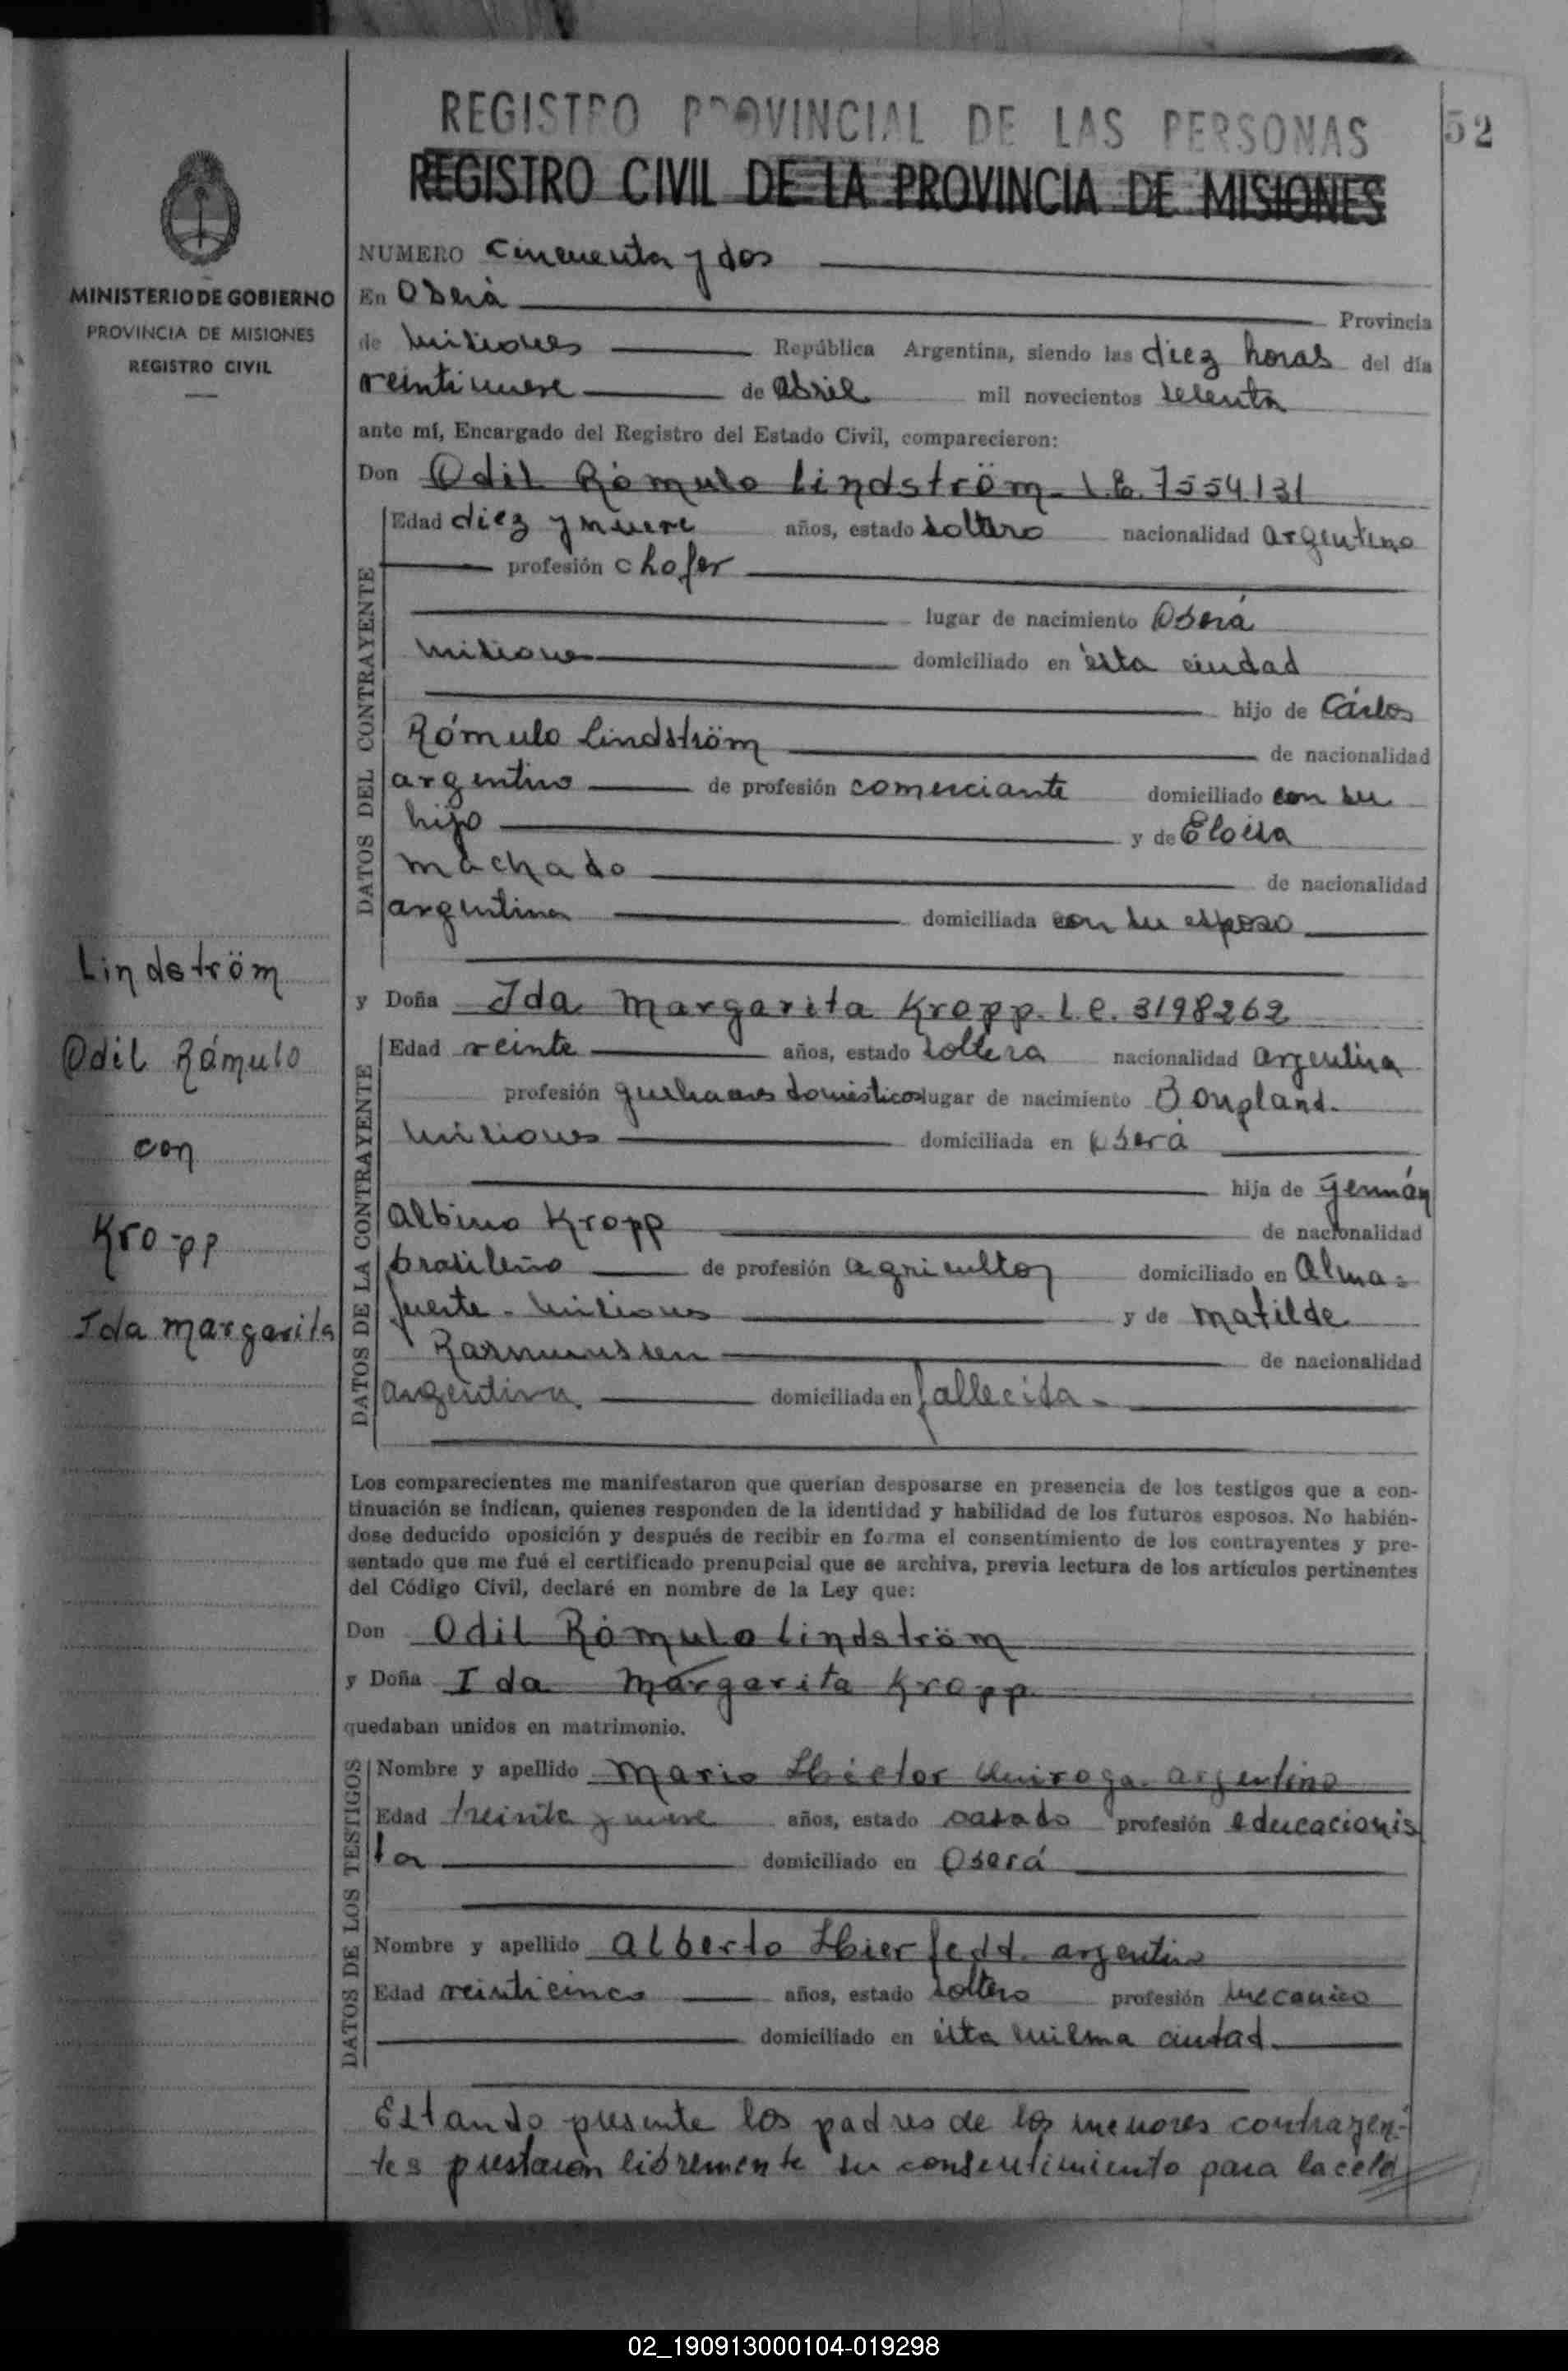 REGISTRO PROVINCIAL DE LAS PERSONAS
52
REGISTRO CIVIL DE LA PROVINCIA DE MISIONES
MINISTERIO DE GOBIERNO
PROVINCIA DE MISIONES
REGISTRO CIVIL
NUMERO Cincuenta y dos
En Oberá Provincia
de Misiones República Argentina, siendo las diez horas del día
veintinueve de Abril mil novecientos setenta
ante mí, Encargado del Registro del Estado Civil, comparecieron:
Don Odil Rómulo Lindström L.E. 7554131
DATOS DEL CONTRAYENTE
Edad diez y nueve años, estado soltero nacionalidad argentino
profesión chofer
lugar de nacimiento Oberá
Misiones domiciliado en ésta ciudad
hijo de Cárlos
Rómulo Lindström de nacionalidad
argentino de profesión comerciante domiciliado con su
hijo y de Eloisa
Machado de nacionalidad
argentina domiciliada con su esposo
Lindström
Odil Rómulo
con
Kropp
Ida Margarita
y Doña Ida Margarita Kropp. L.C. 3198262
DATOS DE LA CONTRAYENTE
Edad veinte años, estado soltera nacionalidad argentina
profesión quehaceres domésticos lugar de nacimiento Bonpland.
Misiones domiciliada en Oberá
hija de Germán
Albino Kropp de nacionalidad
brasileño de profesión agricultor domiciliado en Alma=
fuerte - Misiones y de Matilde
Rasmussen de nacionalidad
argentina. domiciliada en fallecida -
Los comparecientes me manifestaron que querían desposarse en presencia de los testigos que a con-
tinuación se indican, quienes responden de la identidad y habilidad de los futuros esposos. No habién-
dose deducido oposición y después de recibir en forma el consentimiento de los contrayentes y pre-
sentado que me fué el certificado prenupcial que se archiva, previa lectura de los artículos pertinentes
del Código Civil, declaré en nombre de la Ley que:
Don Odil Rómulo Lindström
y Doña Ida Margarita Kropp
quedaban unidos en matrimonio.
DATOS DE LOS TESTIGOS
Nombre y apellido Mario Héctor Quiroga. argentino
Edad treinta y nueve años, estado casado profesión educacionis
ta domiciliado en Oberá
Nombre y apellido Alberto argentino
Edad veinticinco años, estado soltero profesión mecanico
domiciliado en ésta misma ciudad.
Estando presente los padres de los menores contrayen-
tes prestaron libremente su consentimiento para la cele
02_190913000104-019298